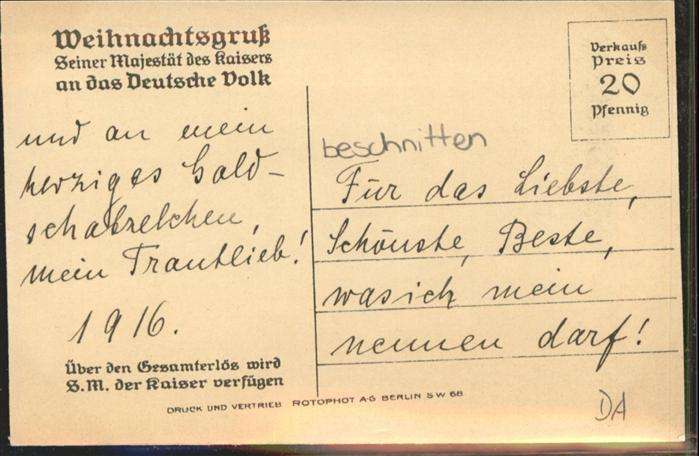 Weihnachtsgruß
Seiner Majestät des Kaisers
an das Deutsche Volk
und an mein
herziges Gold-
schatzelchen,
mein Trautlieb!
1916.
Über den Gesamterlös wird
S.M. der Kaiser verfügen
Verkaufs
Preis
20
Pfennig
beschnitten
Für das Liebste,
Schönste, Beste,
was ich mein
nennen darf!
DRUCK UND VERTRIEB ROTOPHOT A-G BERLIN SW 68
DA